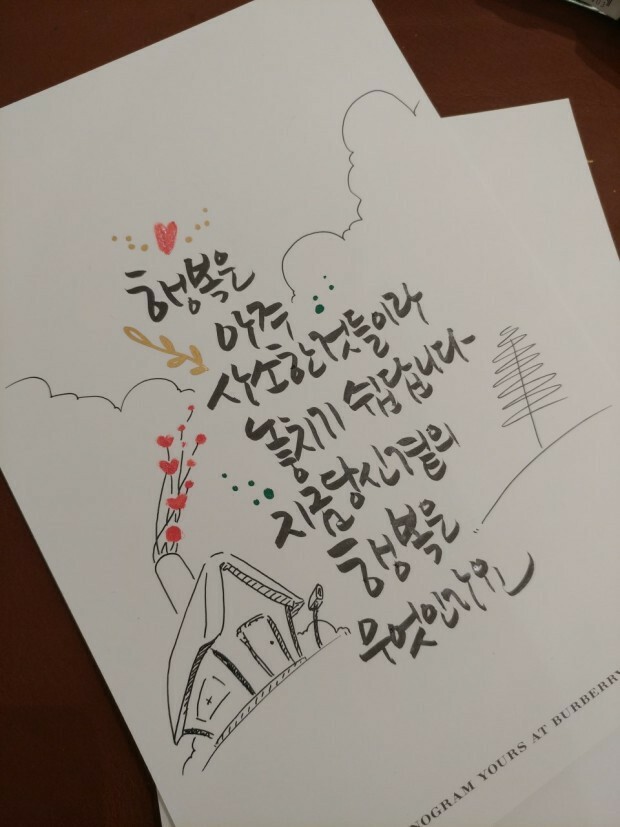 행복은
아주
사소한것들이라
놓치기 쉽답니다
지금당신곁의
행복은
무엇인가요
NOGRAM YOURS AT BURBERRY